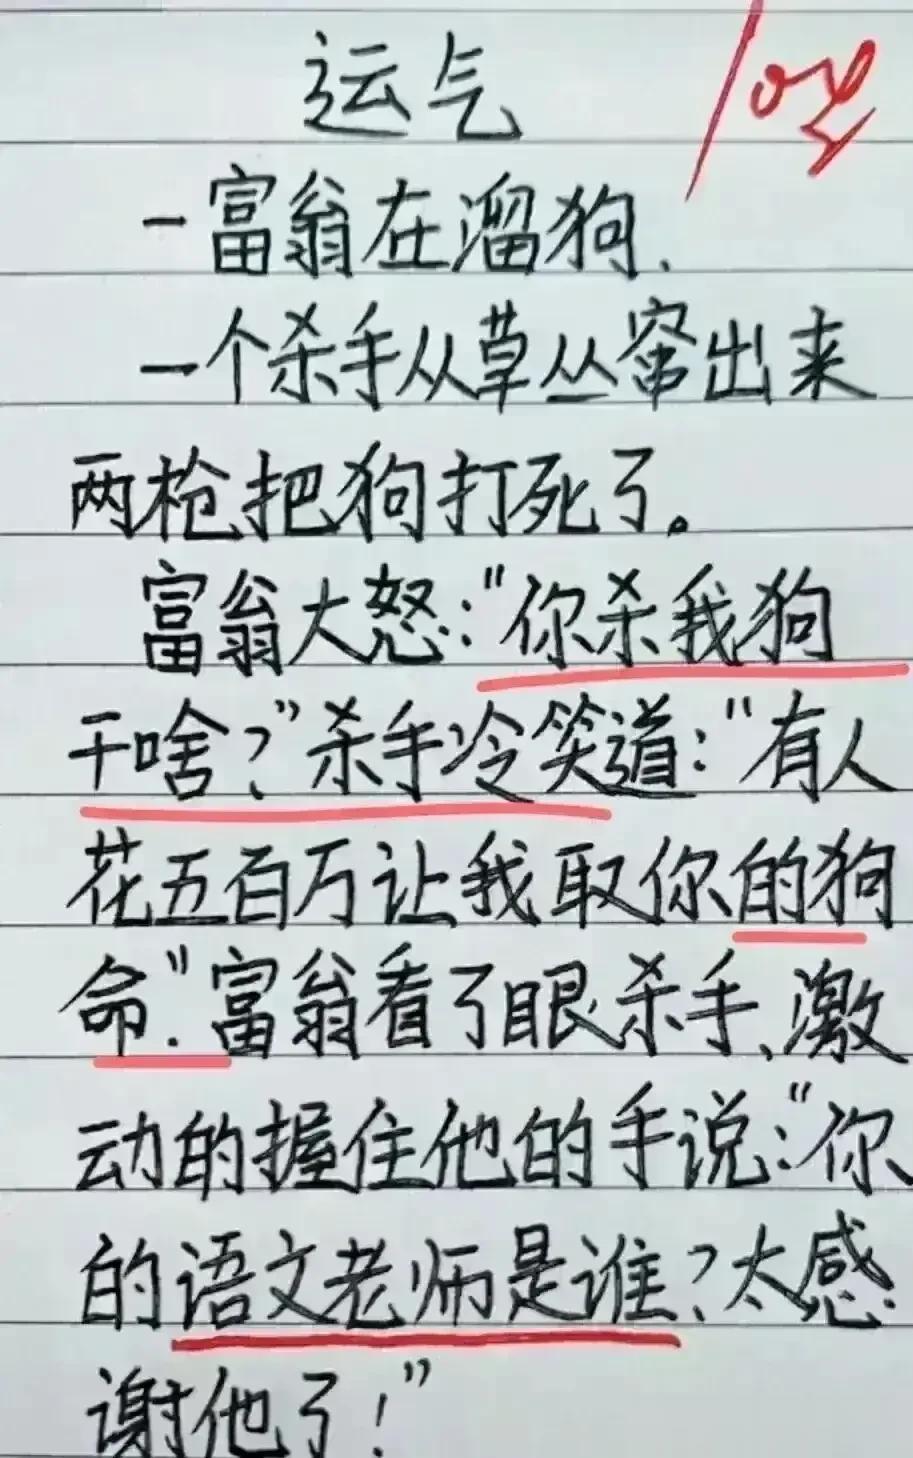 运气
一富翁在溜狗.
一个杀手从草丛窜出来
两枪把狗打死了。
富翁大怒:"你杀我狗
干啥?"杀手冷笑道:"有人
花五百万让我取你的狗
命".富翁看了眼杀手、激
动的握住他的手说:"你
的语文老师是谁?太感
谢他了!"